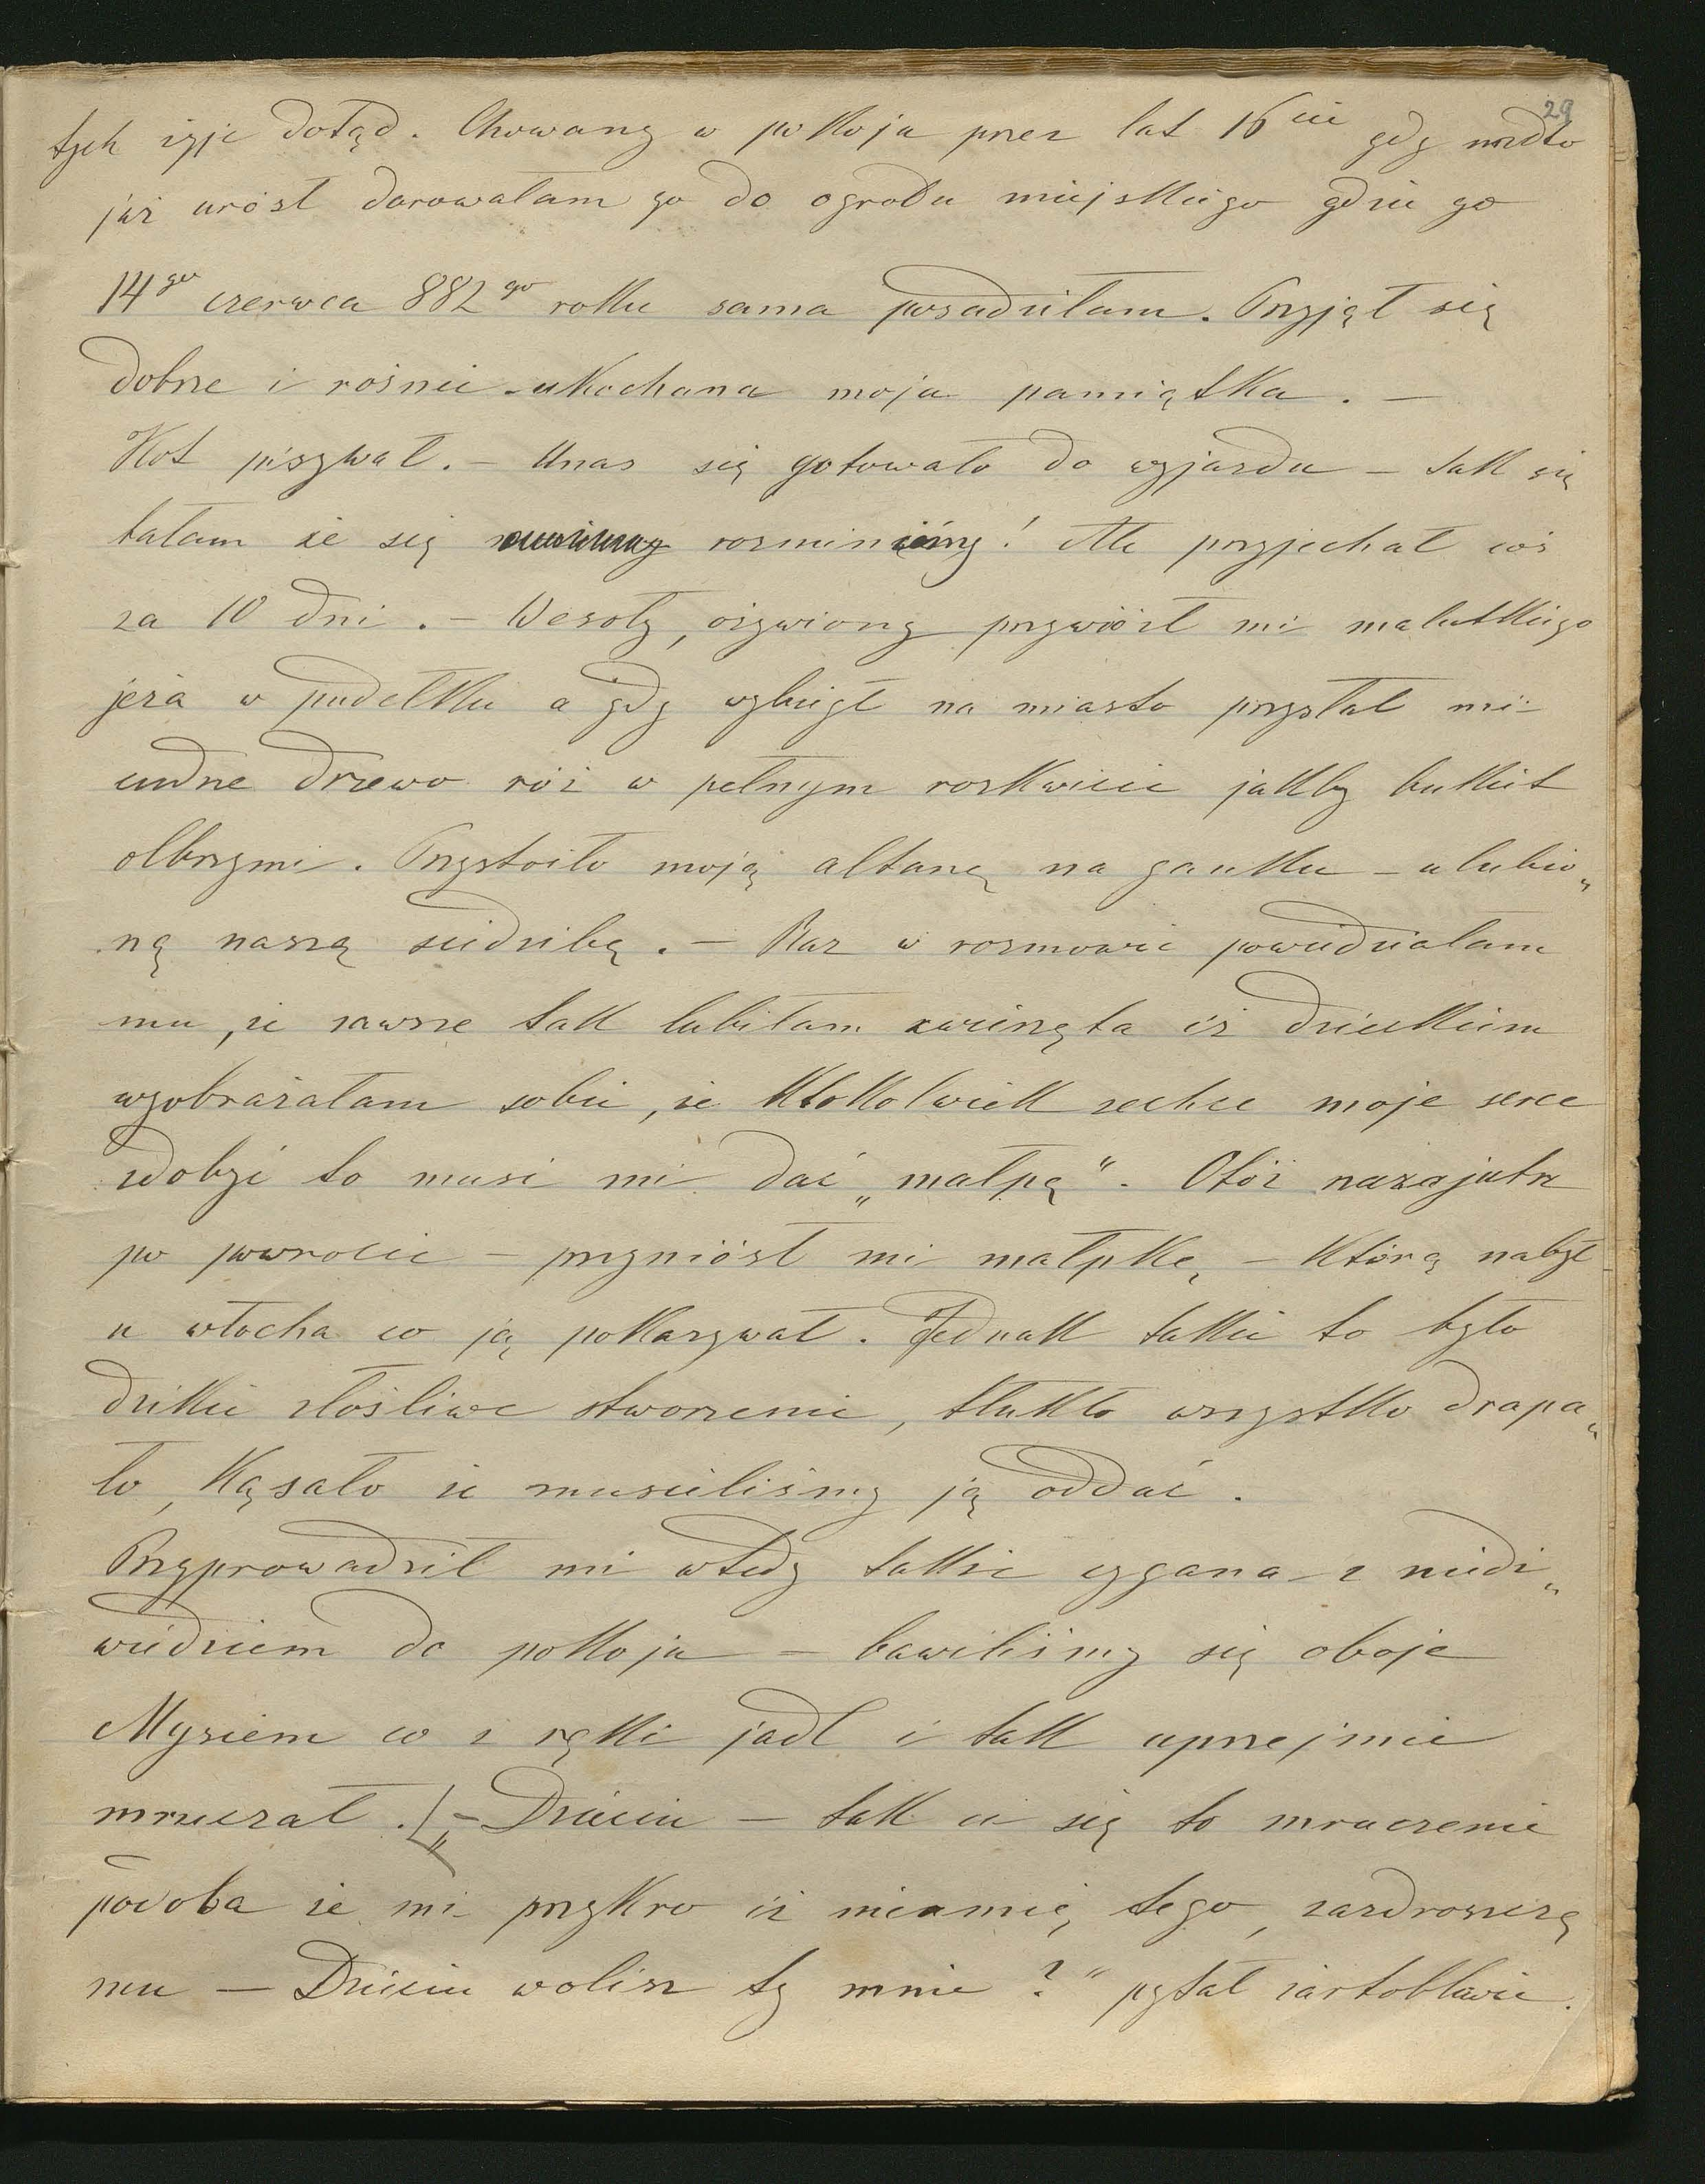 29
tych żyje dotąd. Chowany w pokoju przez lat 16cie gdy
już urósł darowałam go do ogrodu miejskiego gdzie go
14go czerwca 882go roku sama posadziłam. Przyjął się
dobrze i rośnie ukochana moja pamiątka. —
Kot pisywał. — Unas się gotowało do wyjazdu — tak się
bałam że się rozminiemy! Ale przyjechał coś
za 10 dni. — Wesoły, ożywiony przywiózł mi malutkiego
jeża w pudełku a gdy wybiegł na miasto przysłał mi
cudne drzewo róż w pełnym rozkwicie jakby bukiet
olbrzymi. Przystroiło moją altanę na ganku — ulubio„
ną naszą siedzibę. — Raz w rozmowie powiedziałam
mu, że zawsze tak lubiłam zwierzęta iż dzieckiem
wyobrażałam sobie, że ktokolwiek zechce moje serce
zdobyć to musi mi dać „małpę“. Otóż nazajutrz
po powrocie — przyniósł mi małpkę, — którą nabył
u włocha co ją pokazywał. Jednak takie to było
dzikie złośliwe stworzenie, tłukło wszystko drapa„
ło, kąsało że musieliśmy ją oddać.
Przyprowadził mi wtedy także cygana z niedź„
wiedziem do pokoju — bawiliśmy się oboje
Mysiem co z ręki jadł i tak uprzejmie
mruczał. „— Dziciu — tak ci się to mruczenie
podoba że mi przykro iż nieumię tego, zazdroszczę
mu — Dziciu wolisz ty mnie?“ pytał żartobliwie.